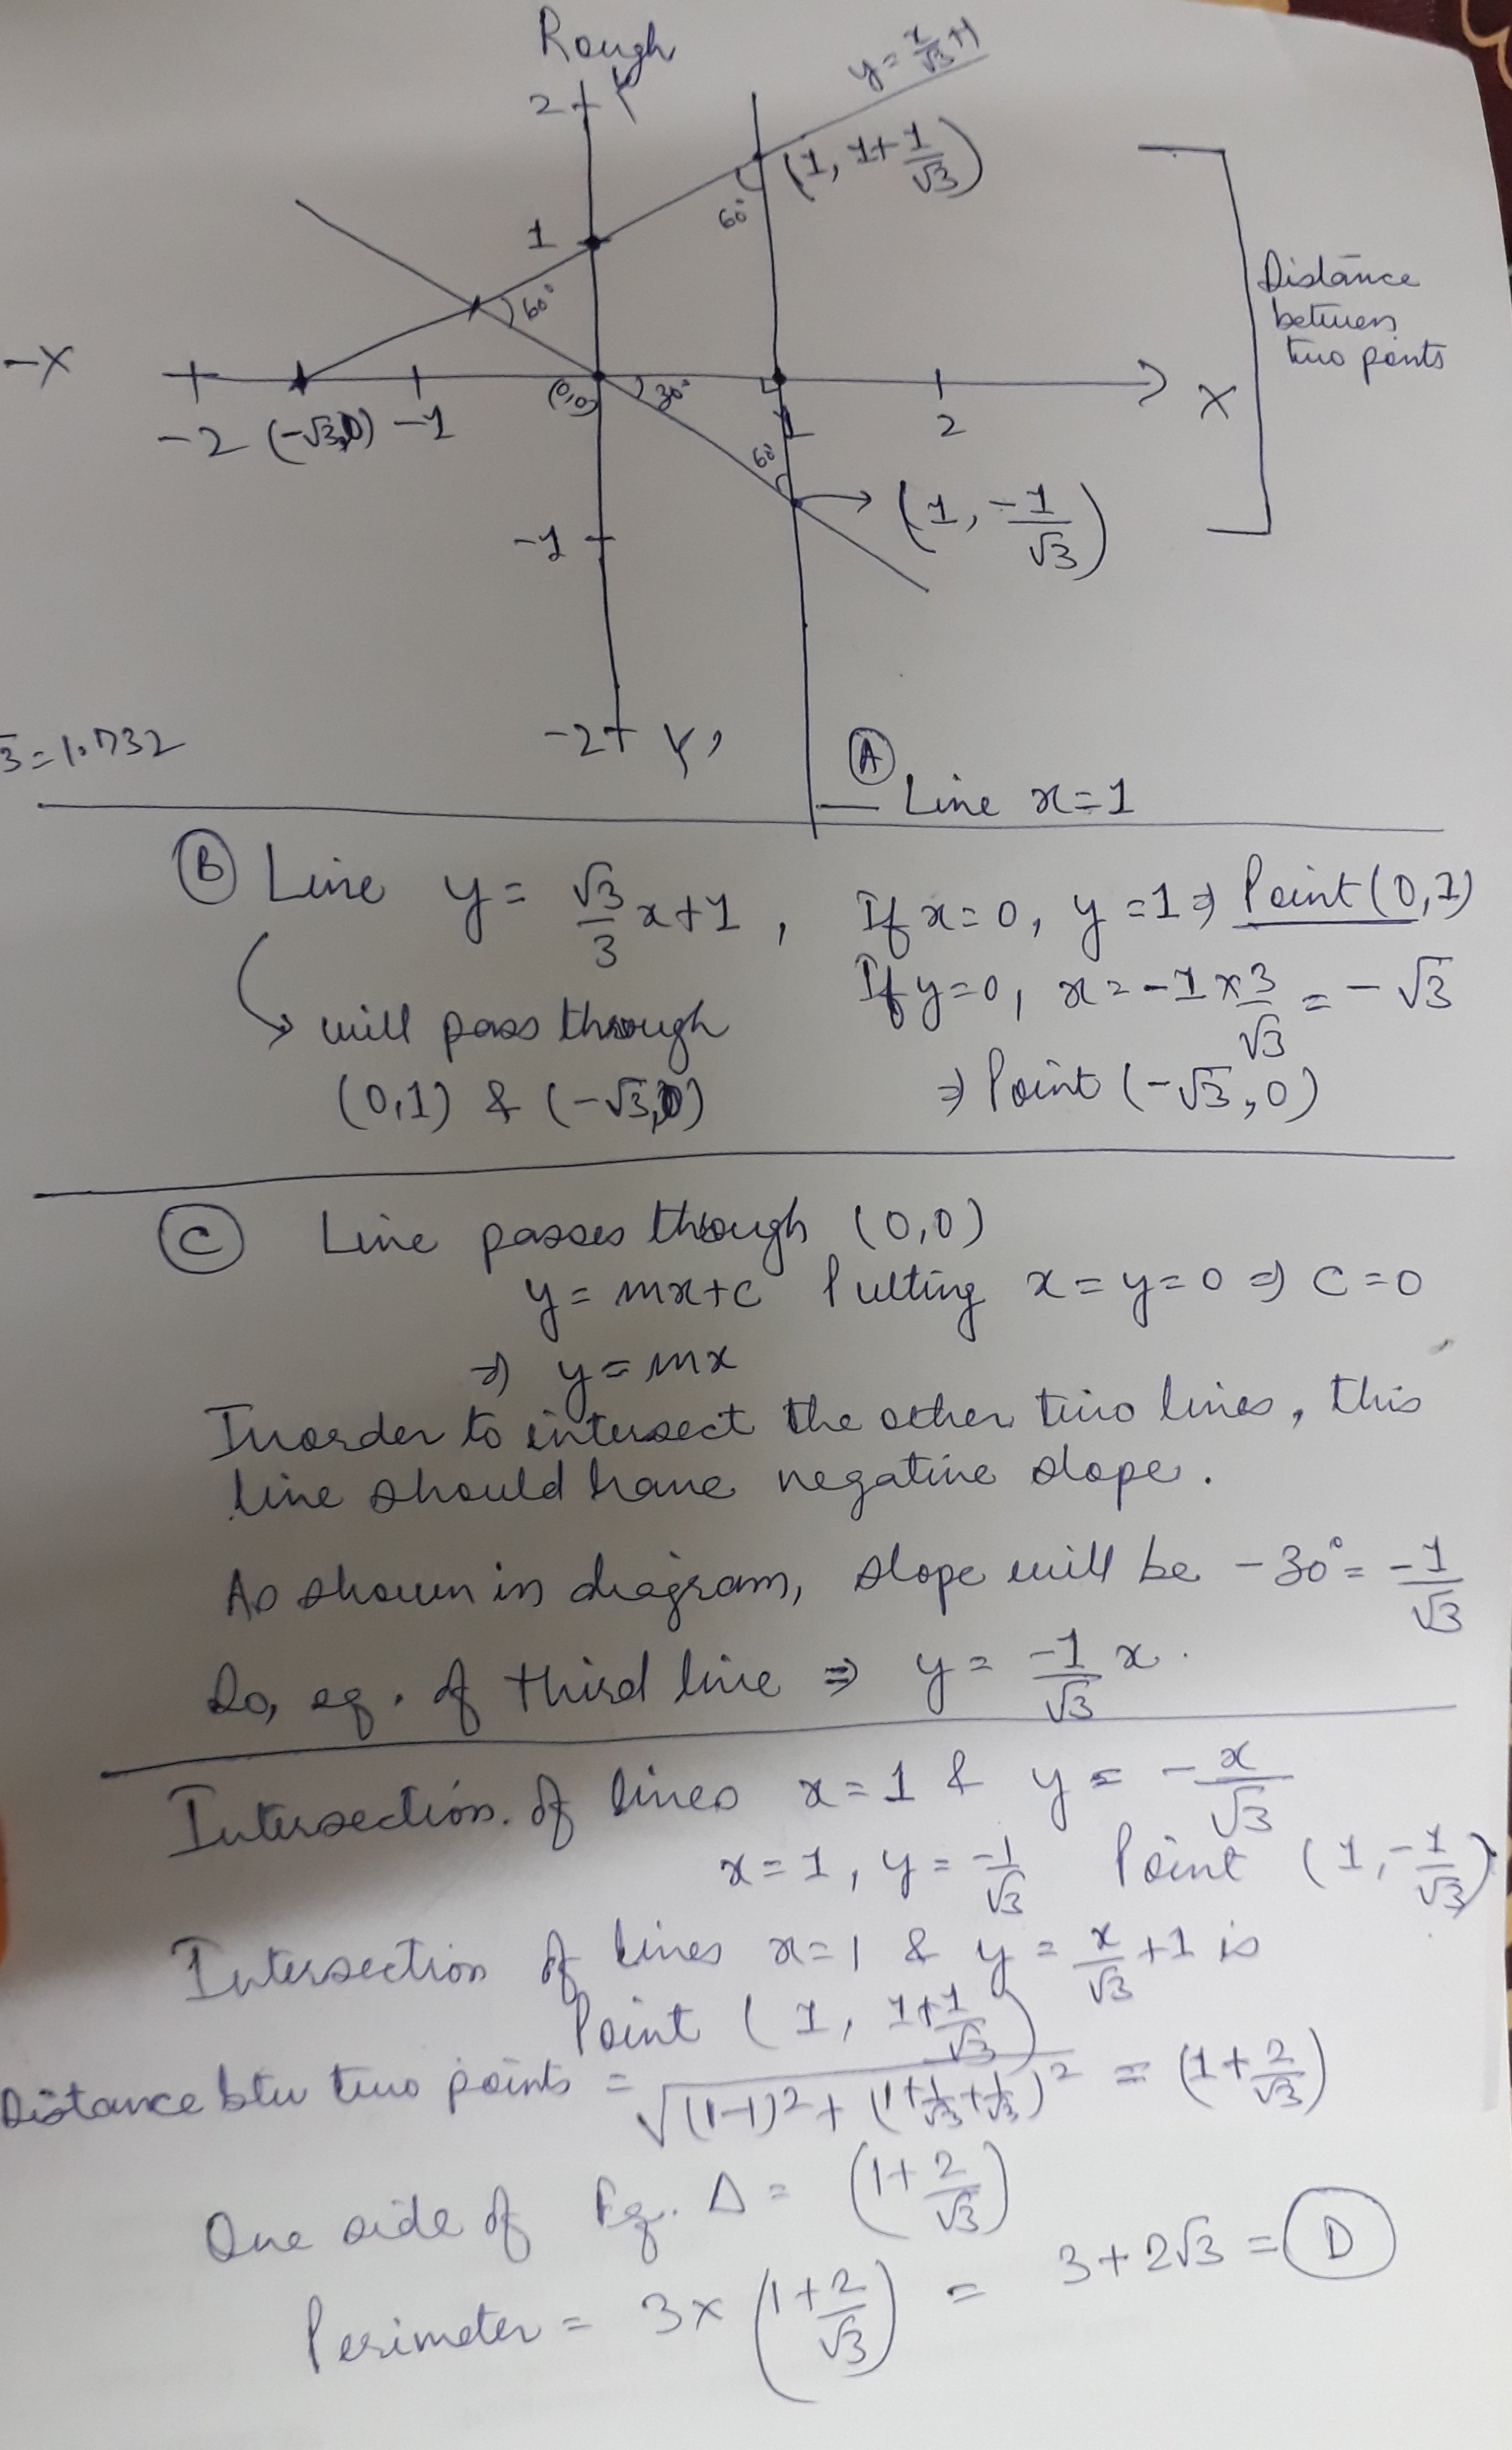 Rough
y = x/√3 + 1
2 Y
(1, 1+1/√3)
60°
1
60°
Distance
between
two points
-X
(0,0)
30°
X
-2 (-√3,0) -1
1
2
60°
(1, -1/√3)
-1
√3 = 1.732
-2 Y'
(A) Line x=1
(B) Line y = √3/3 x+1, If x=0, y=1 ⇒ Point (0,1)
If y=0, x = -1 × 3/√3 = -√3
will pass through
(0,1) & (-√3,0)
⇒ Point (-√3,0)
(C) Line passes through (0,0)
y = mx+c Putting x=y=0 ⇒ C=0
⇒ y = mx
In order to intersect the other two lines, this
line should have negative slope.
As shown in diagram, slope will be -30° = -1/√3
So, eq. of third line ⇒ y = -1/√3 x.
Intersection of lines x=1 & y = -x/√3
x=1, y = -1/√3 Point (1, -1/√3)
Intersection of lines x=1 & y = x/√3 +1 is
Point (1, 1+1/√3)
Distance btw two points = √((1-1)² + (1+1/√3+1/√3)²) = (1+2/√3)
One side of Eq. Δ = (1+2/√3)
Perimeter = 3× (1+2/√3) = 3+2√3 = (D)